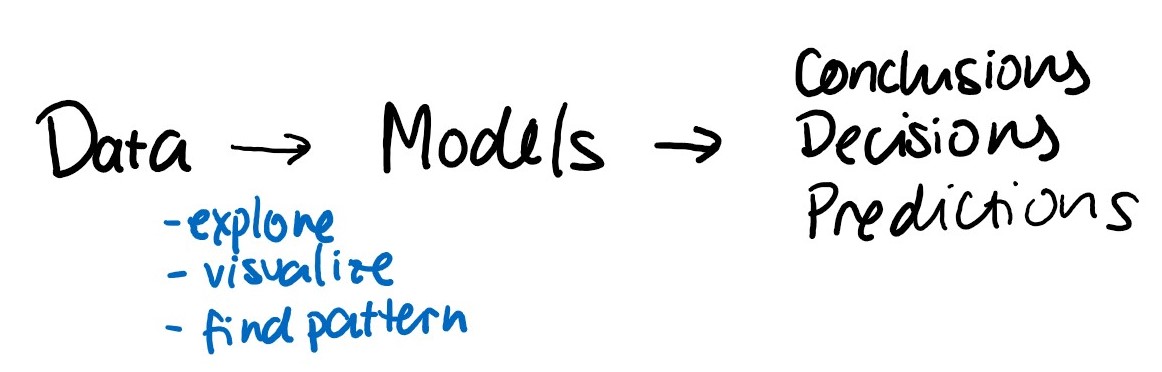 Data → Models → Conclusions
Decisions
Predictions
- explore
- visualize
- find pattern